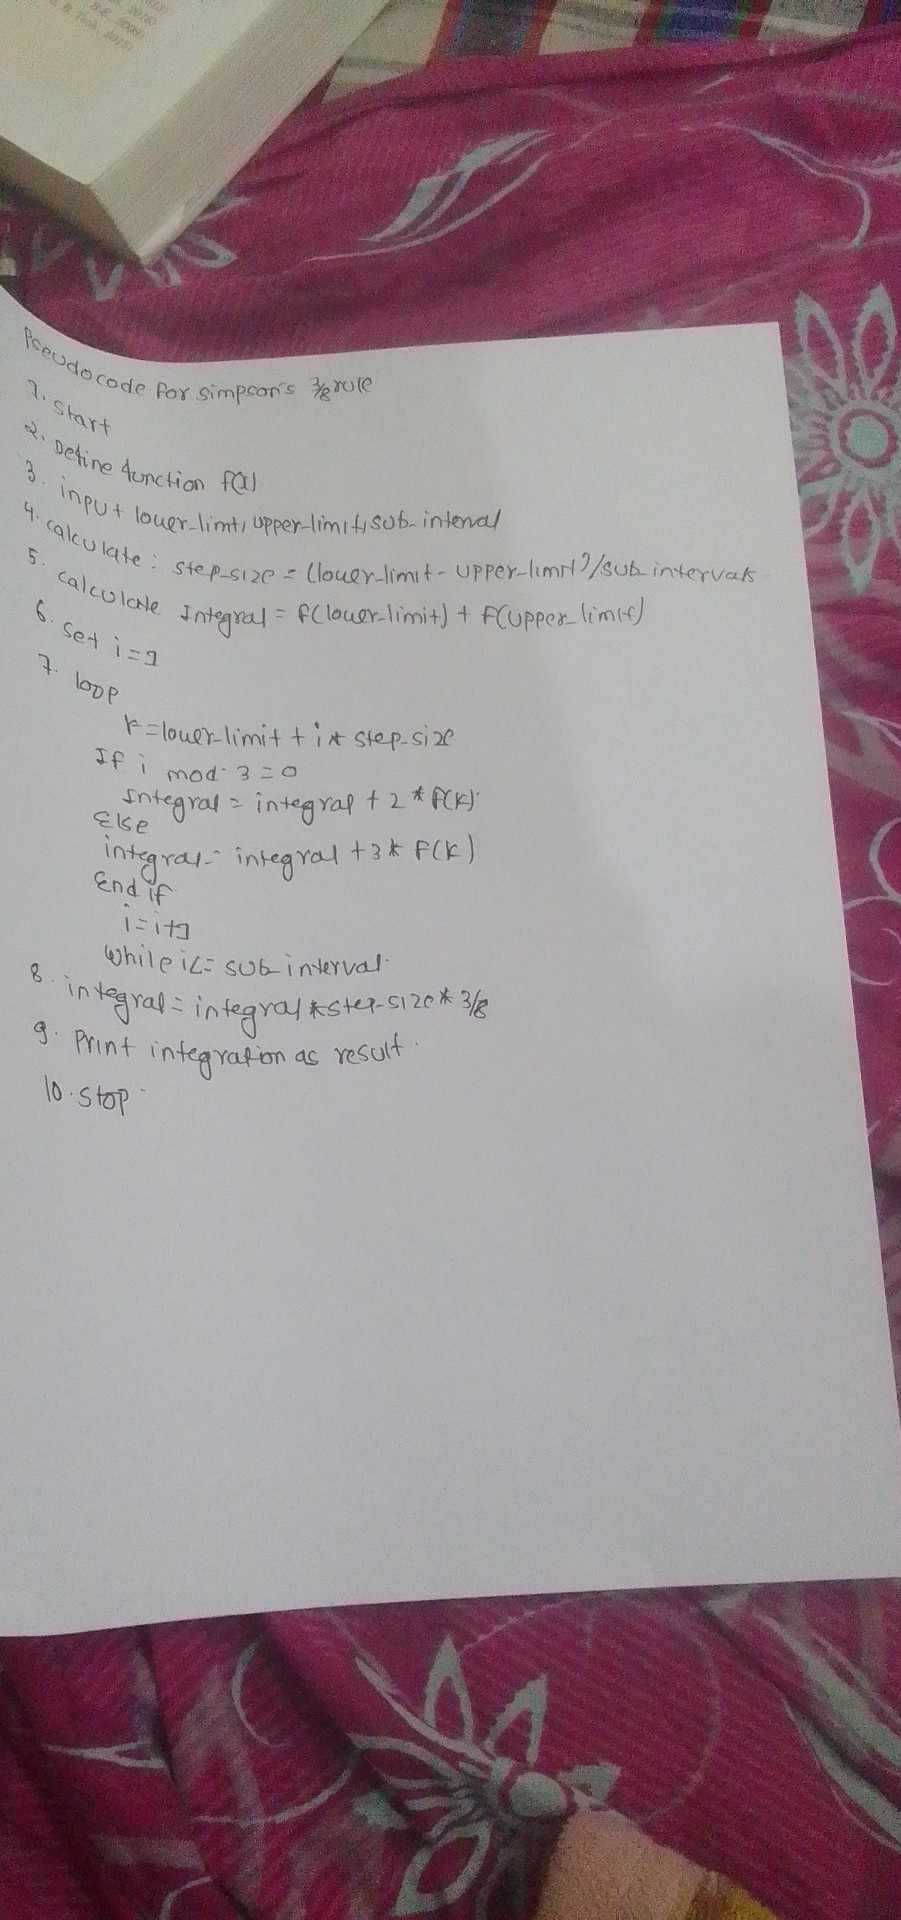 2016)
B.E. 2009)
B. Tech. 2015)
Pseudocode for simpson's 3/8 rule
1. start
2. Define function f(x)
3. input lower-limt, upper-limit, sub-interval
4. calculate: step-size = (lower-limit - upper-limit)/sub intervals
5. calculate Integral = f(lower-limit) + f(upper-limit)
6. set i=1
7. loop
k=lower-limit + i* step-size
If i mod 3=0
Integral = integral + 2 * f(k)
Else
integral = integral +3* f(k)
End if
i=i+1
while i<= sub interval.
8. integral = integral *step-size* 3/8
9. Print integration as result.
10. stop